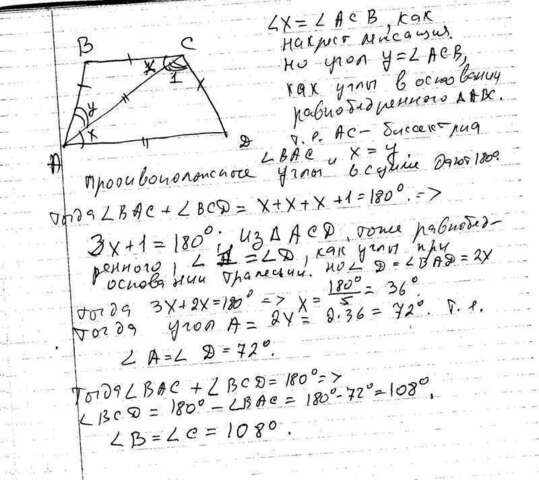 B C
x 1
y
x
A D
∠X = ∠ACB, как
накрест лежащия.
но угол y = ∠ACB,
как углы в основании
равнобедренного ΔABC.
т.е. AC - биссектриса
∠BAC и x = y.
Противоположные углы в сумме дают 180°.
Тогда ∠BAC + ∠BCD = x + x + x + 1 = 180° =>
3x + 1 = 180°. Из ΔACD, тоже равнобед-
ренного, ∠1 = ∠D, как углы при
основании трапеции. но ∠D = ∠BAD = 2x
Тогда 3x + 2x = 180° => x = 180°/5 = 36°
Тогда угол A = 2x = 2·36 = 72°. т.е.
∠A = ∠D = 72°.
Тогда ∠BAC + ∠BCD = 180° =>
∠BCD = 180° - ∠BAC = 180° - 72° = 108°.
∠B = ∠C = 108°.